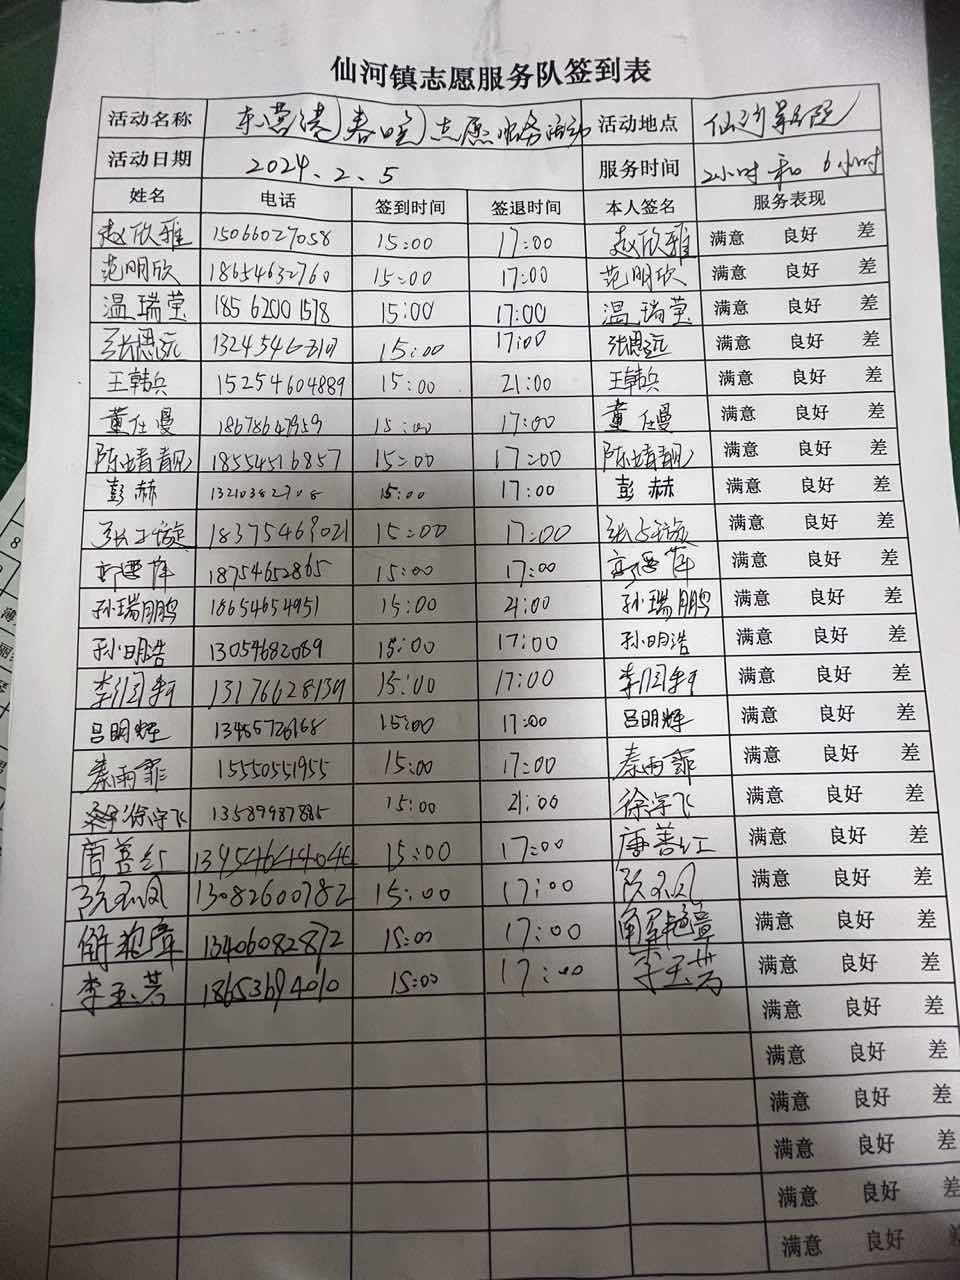 仙河镇志愿服务队签到表
活动名称 东营港（春晚）志愿服务活动 活动地点 仙河影院
活动日期 2024.2.5 服务时间 2小时和6小时
姓名 电话 签到时间 签退时间 本人签名 服务表现
赵欣雅 15066027058 15:00 17:00 赵欣雅 满意 良好 差
范明欣 18654632760 15:00 17:00 范明欣 满意 良好 差
温瑞莹 18562001578 15:00 17:00 温瑞莹 满意 良好 差
张思远 15:00 17:00 张思远 满意 良好 差
王韩兵 15254604889 15:00 21:00 王韩兵 满意 良好 差
董仕曼 18678647959 15:00 17:00 董仕曼 满意 良好 差
陈婧靓 18554516857 15:00 17:00 陈婧靓 满意 良好 差
彭赫 15:00 17:00 彭赫 满意 良好 差
18375469021 15:00 17:00 满意 良好 差
18754652865 15:00 17:00 满意 良好 差
孙瑞鹏 18654654951 15:00 21:00 孙瑞鹏 满意 良好 差
孙明浩 13054682089 15:00 17:00 孙明浩 满意 良好 差
李闰轩 15:00 17:00 李闰轩 满意 良好 差
吕明辉 15:00 17:00 吕明辉 满意 良好 差
秦雨霏 15550551955 15:00 17:00 秦雨霏 满意 良好 差
徐浡飞 13589987885 15:00 21:00 徐浡飞 满意 良好 差
唐善红 15:00 17:00 唐善红 满意 良好 差
13082600782 15:00 17:00 满意 良好 差
解艳章 13406082872 15:00 17:00 解艳章 满意 良好 差
李玉芳 18653694010 15:00 17:00 李玉芳 满意 良好 差
满意 良好 差
满意 良好 差
满意 良好 差
满意 良好 差
满意 良好 差
满意 良好 差